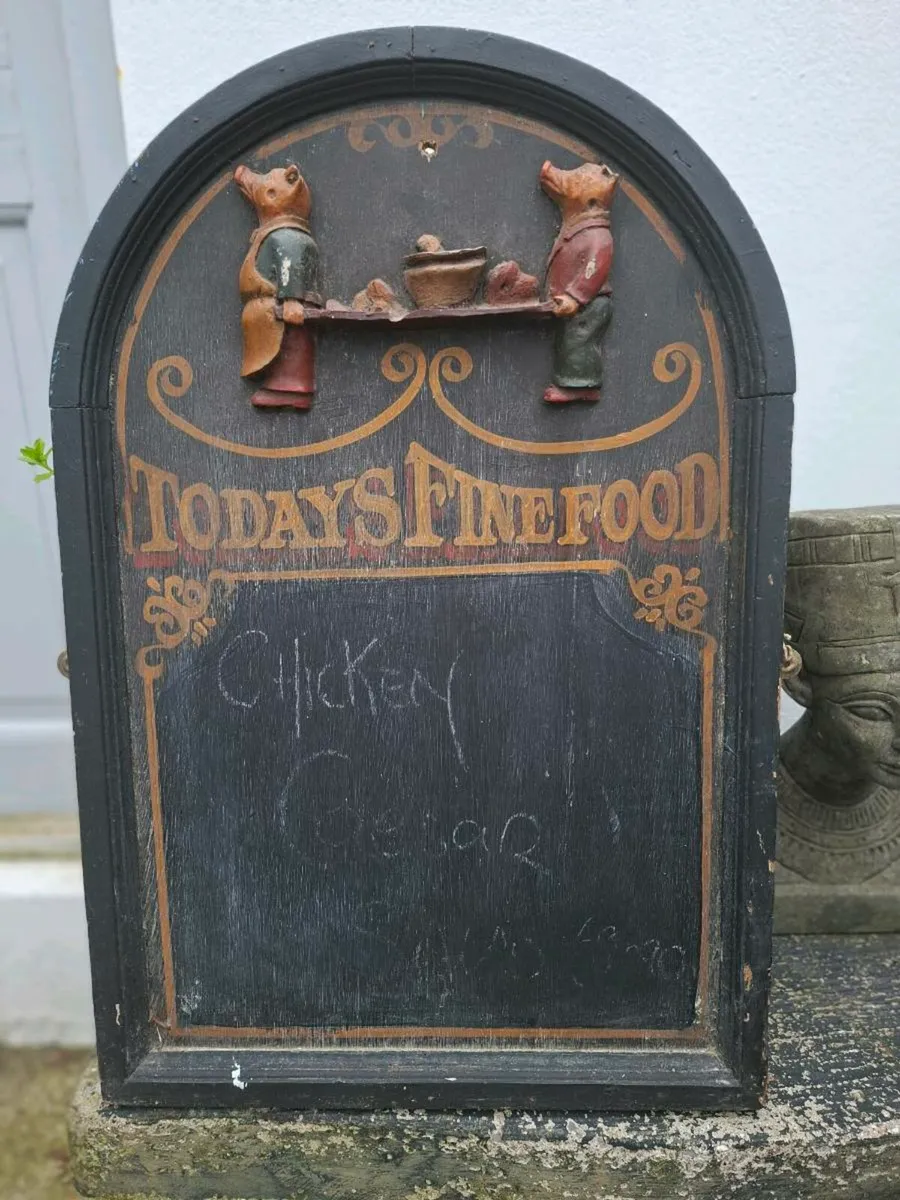 TODAYS FINE FOOD
CHICKEN
Caesar